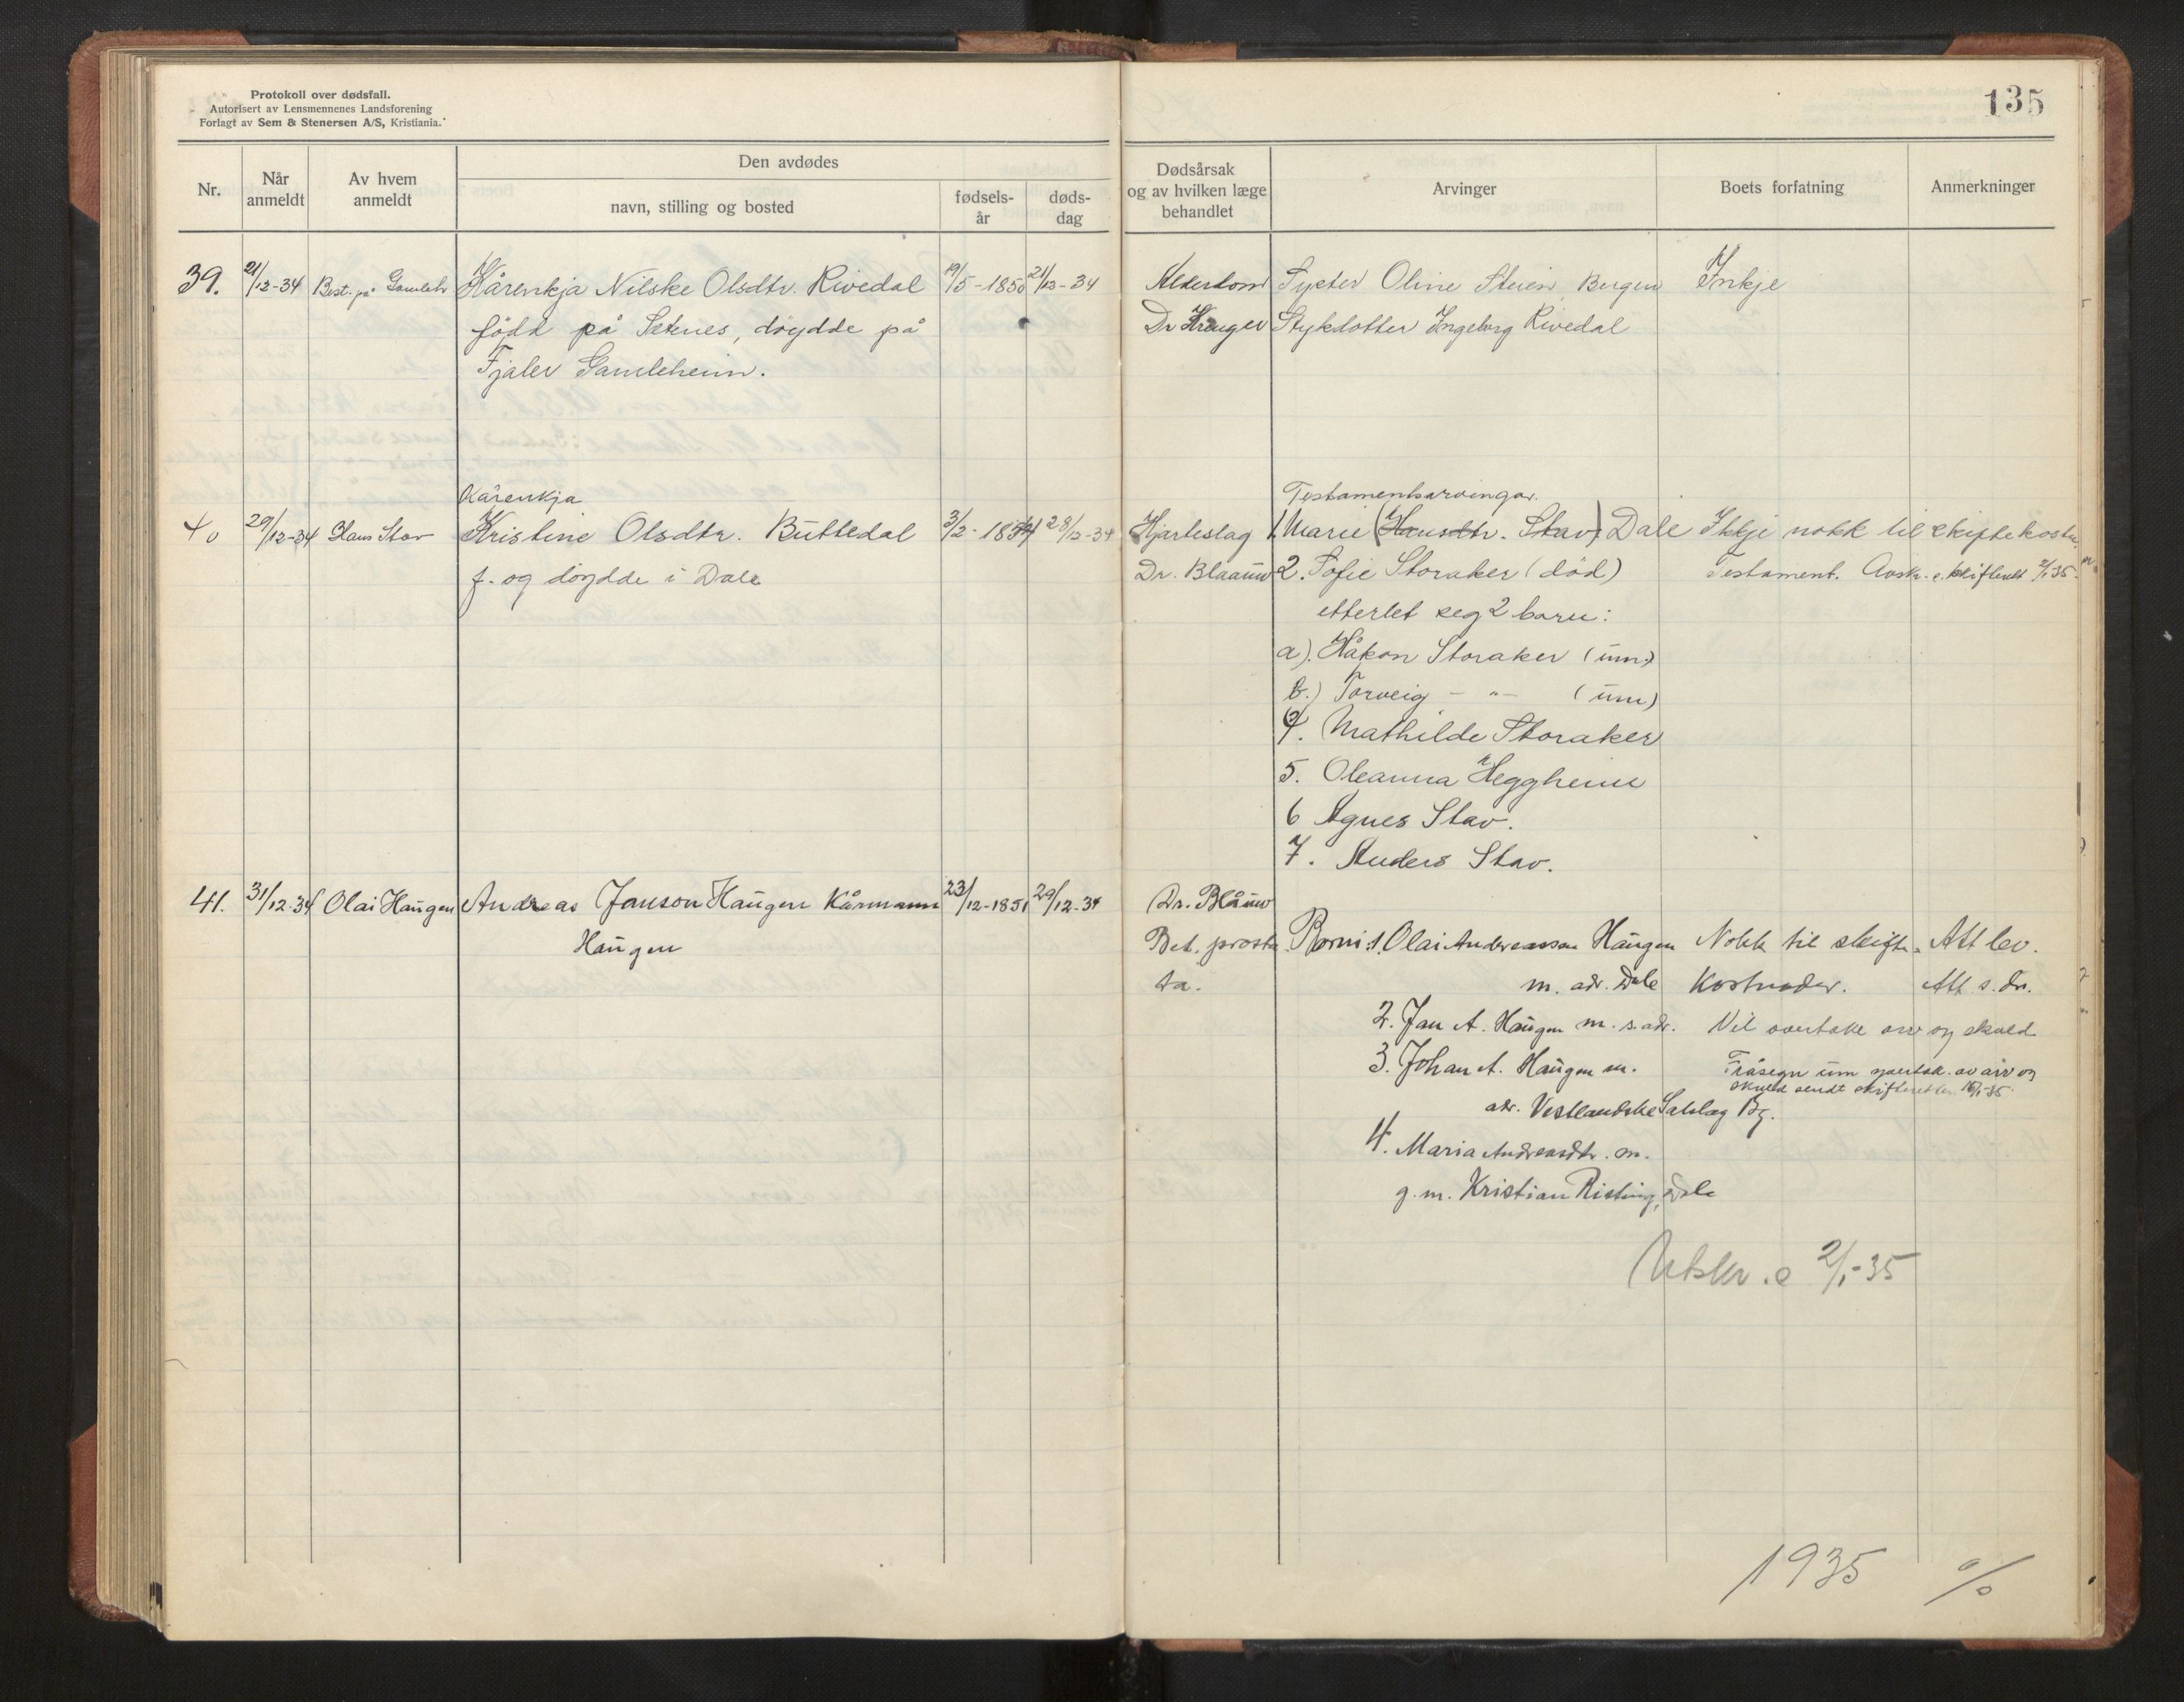 Protokoll over dødsfall.
Autorisert av Lensmennenes Landsforening
Forlagt av Sem & Stenersen A/S, Kristiania.
135
Nr.
Når anmeldt
Av hvem anmeldt
Den avdødes
navn, stilling og bosted
fødsels-år
døds-dag
Dødsårsak og av hvilken læge behandlet
Arvinger
Boets forfatning
Anmerkninger
39. 21/12-34 Best. på Gamleh Kårenkja Nilske Olsdtr. Rivedal 19/5-1850 21/12-34 Alderdom Syster Oline Steien Bergen Inkje
född på Setenes, döydde på Dr Krüger Stykdotter Ingeborg Rivedal
Fjaler Gamleheim.
Kårenkja Testamentsarvingar.
40 29/12-34 Hans Stav Kristine Olsdtr. Buttedal 3/2-1854 28/12-34 Hjarteslag 1 Marie (Hansdtr. Stav) Dale Ikkje nokk til skiftekostn.
f. og döydde i Dale Dr. Blaauw 2. Sofie Storaker (död) Testament. Avskr. s. skifterett 2/1 35.
etterlet seg 2 born:
a). Håkon Storaker (um)
b.) Torveig - " - (um)
4. Mathilde Storaker
5. Oleanna Heggheim
6 Agnes Stav.
7. Anders Stav.
41. 31/12-34 Olai Haugen Andreas Janson Haugen Kårmann 23/12-1851 29/12-34 Dr. Blåuw
Haugen Bet. prosta Born: 1. Olai Andreasson Haugen Nokk til skifte- Att lev.
ta. m. adr. Dale Kostnader. Att s. dr.
2. Jan A. Haugen m. s. adr. Vil overtake arv og skuld
3. Johan A. Haugen m. Fråsegn um yvertak. av arv og
skuld sendt skifteretten 16/1-35.
adr. Vestlandske Salslag Bg.
4. Maria Andreasdtr. m.
g. m. Kristian Risting, Dale
Utskr. s 2/1-35
1935 %